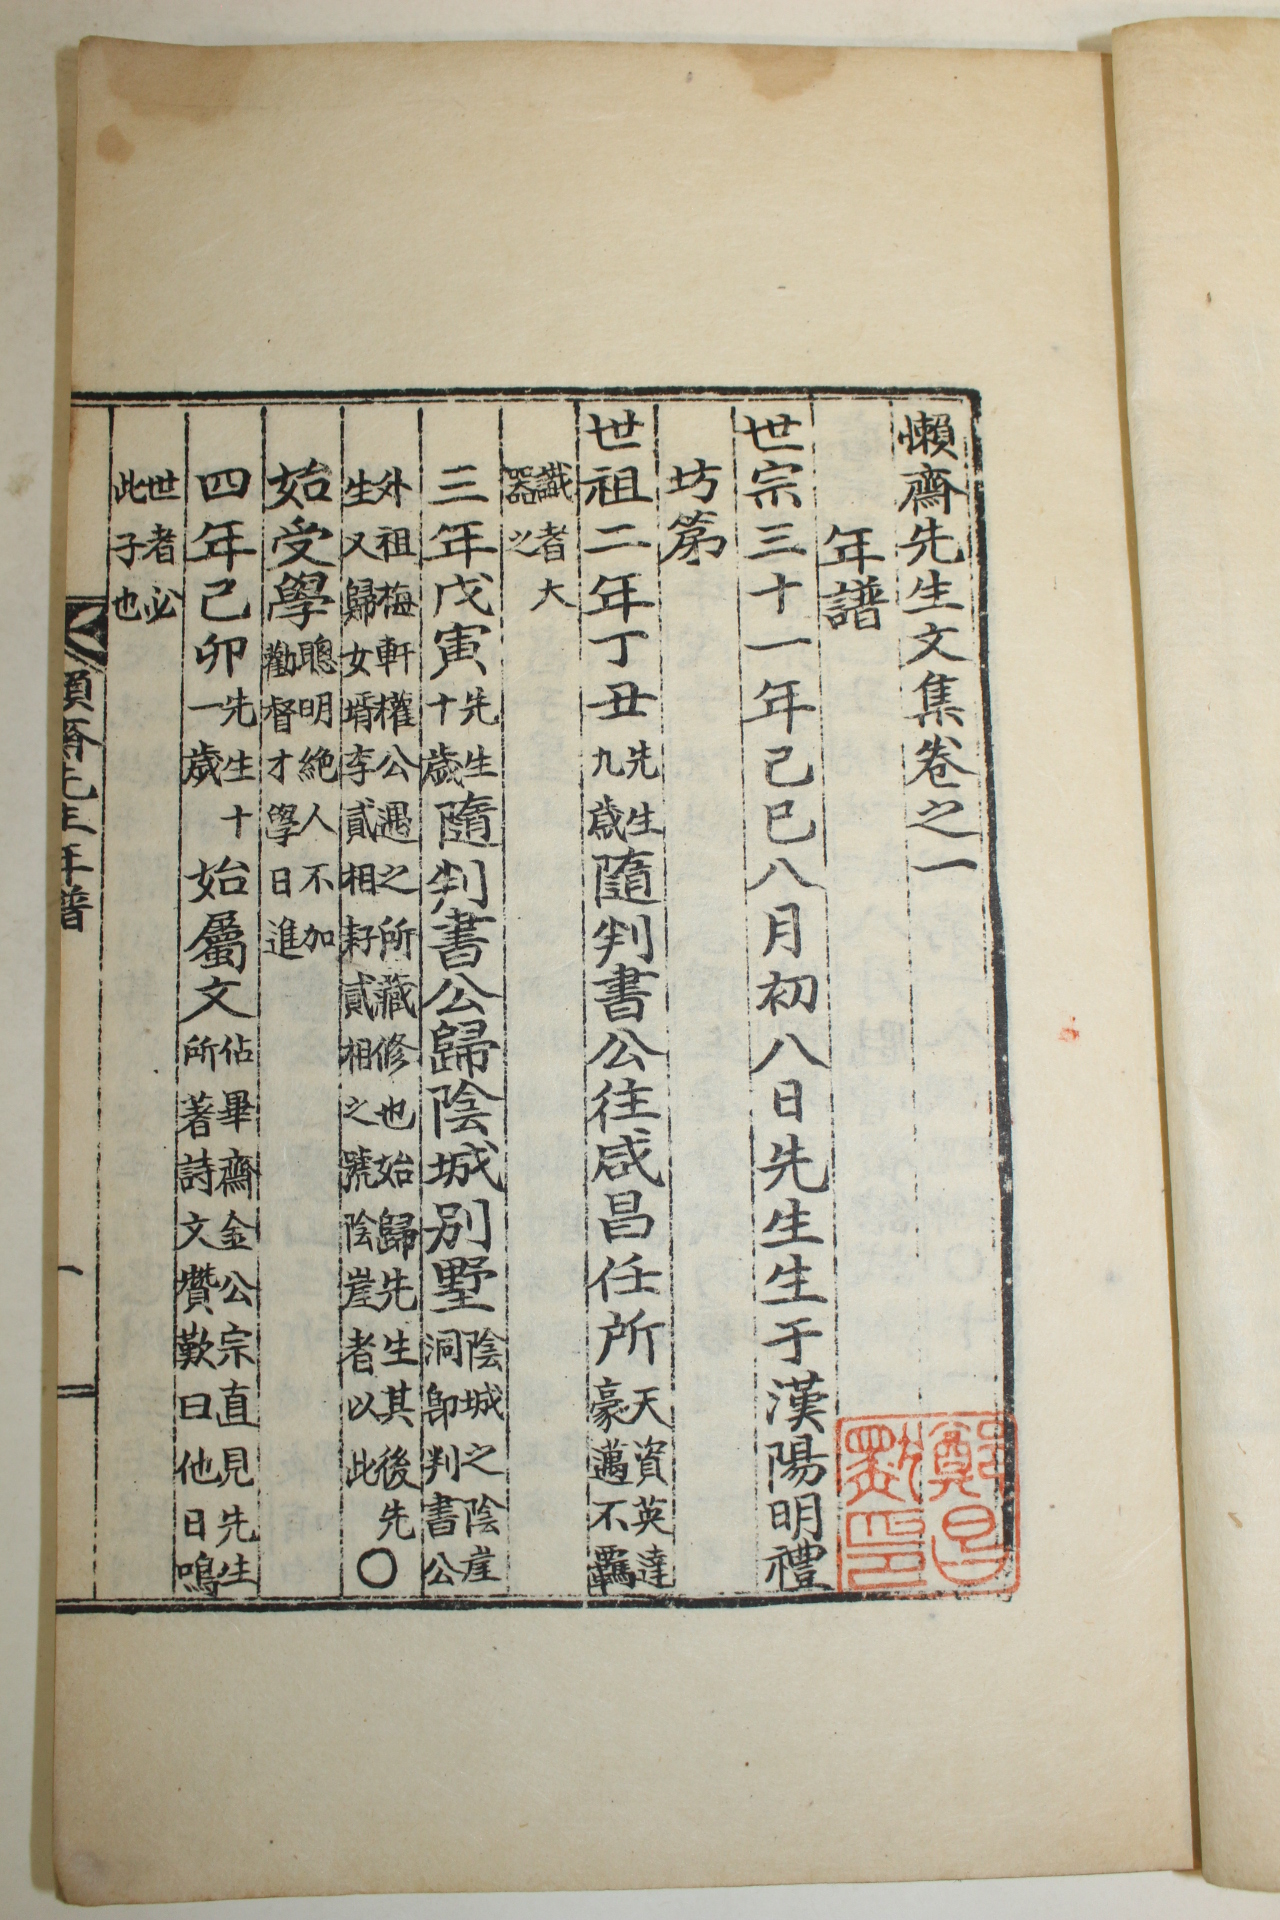 懶齋先生文集卷之一
年譜
世宗三十一年己巳八月初八日先生生于漢陽明禮
坊第
世祖二年丁丑先生九歲隨判書公往咸昌任所天資英達豪邁不羈
識者大器之
三年戊寅先生十歲隨判書公歸陰城別墅陰城之陰崖洞卽判書公
外祖梅軒權公遇之所藏修也始歸先生其後先生又歸女壻李貳相耔貳相之號陰崖者以此○
始受學聰明絶人不加勸督才學日進
四年己卯先生十一歲始屬文佔畢齋金公宗直見先生所著詩文賛歎曰他日鳴
世者必此子也
懶齋先生年譜
一